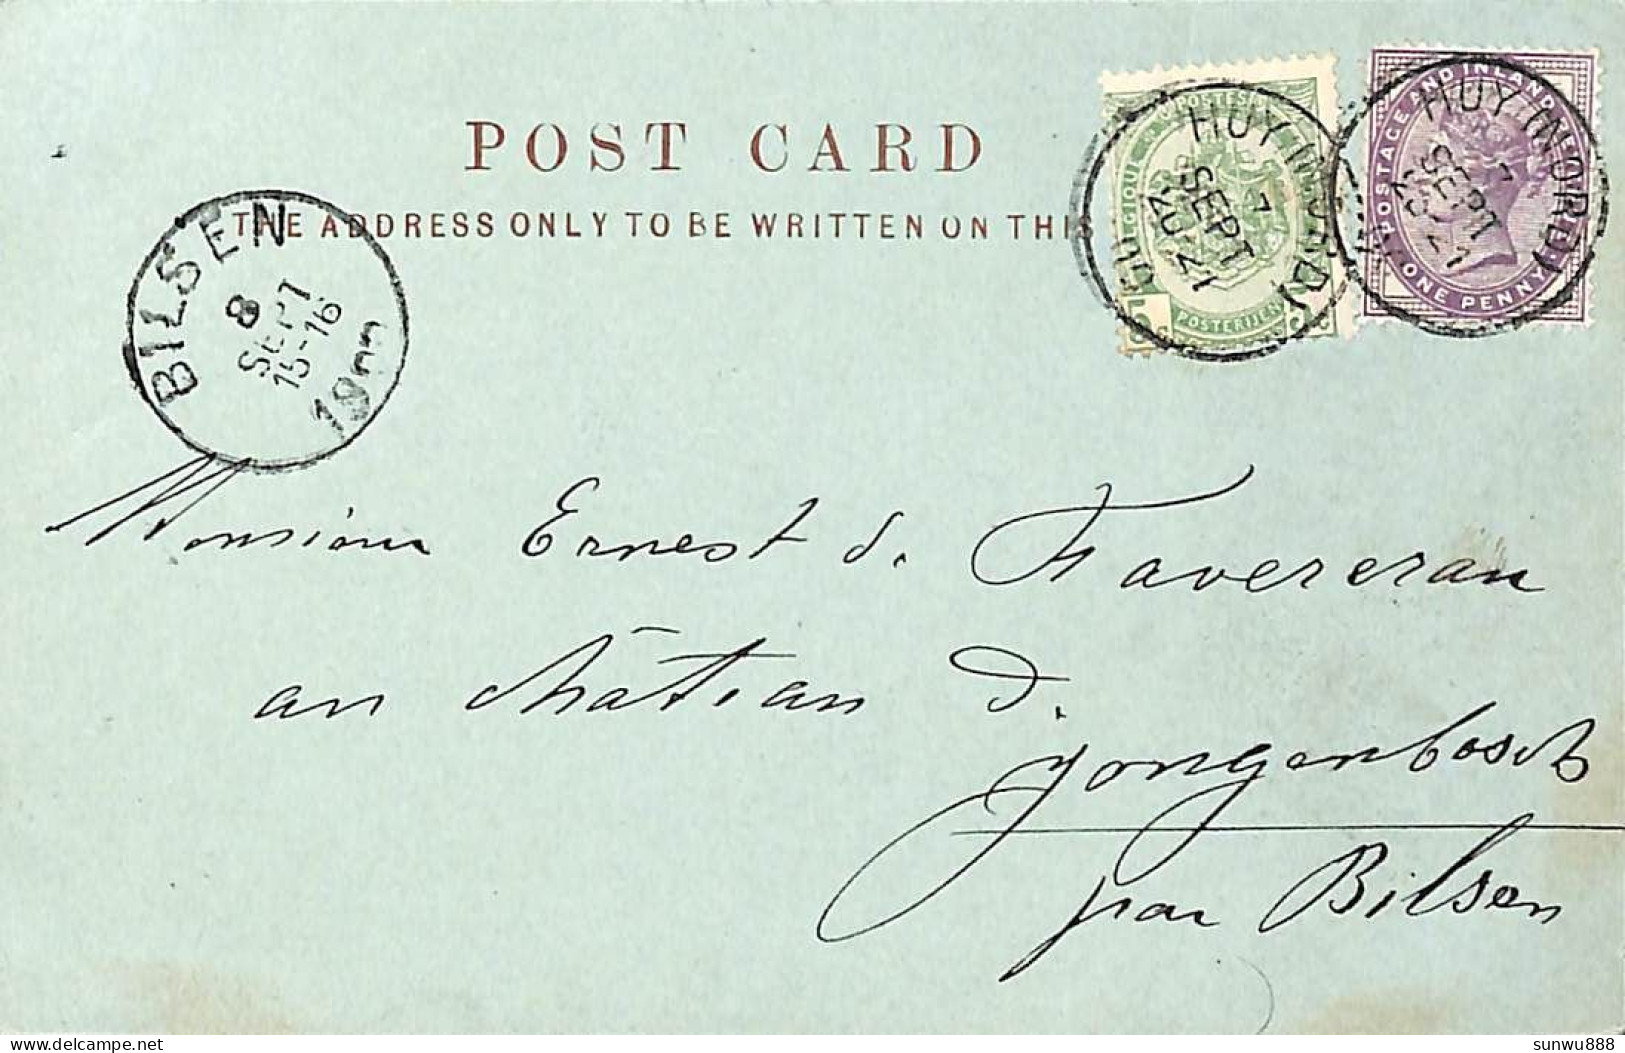 POST CARD
THE ADDRESS ONLY TO BE WRITTEN ON THIS
BILSEN
8
SEPT
15-16
1900
BELGIQUE POSTES
5 c 5 c
POSTERIJEN
HUY (NORD)
7
SEPT
20-21
POSTAGE AND INLAND REVENUE
ONE PENNY
HUY (NORD)
7
SEPT
20-21
Monsieur Ernest d. Favereau
au château d.
Jongenbosch
par Bilsen
sunwu888